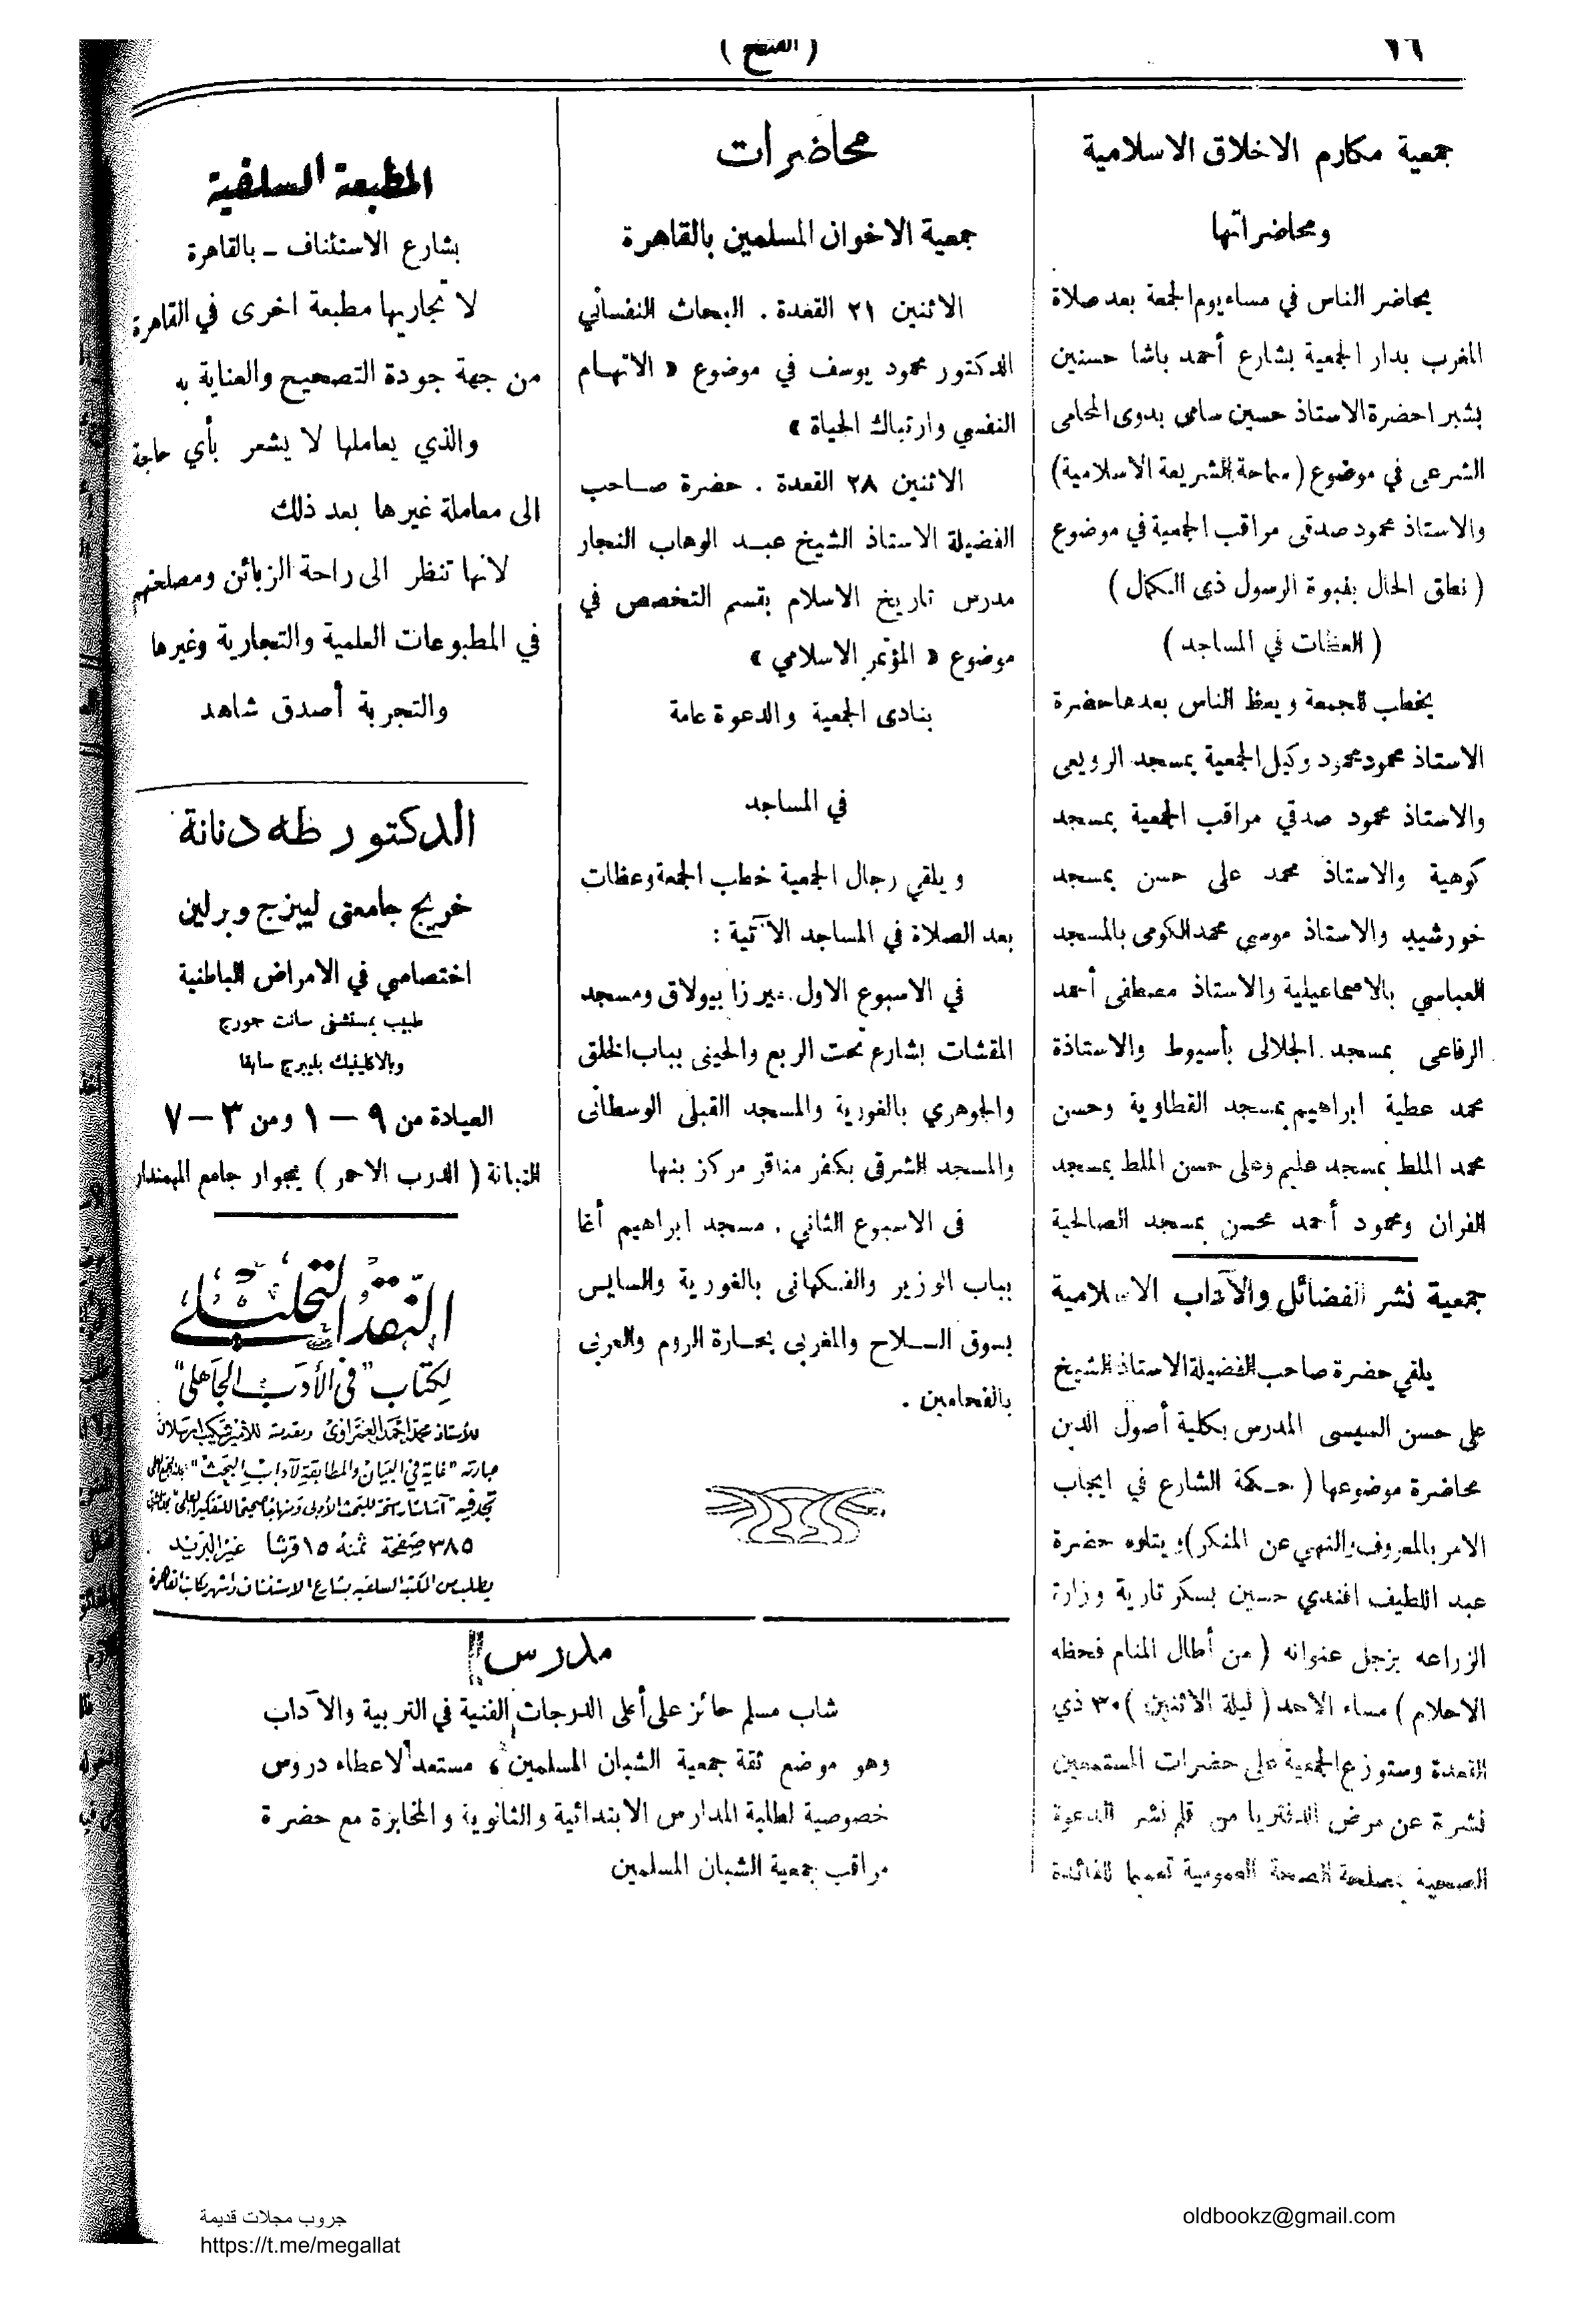 ١٦
( الفتح )
جمعية مكارم الاخلاق الاسلامية
ومحاضراتها
يحاضر الناس في مساء يوم الجمعة بعد صلاة
المغرب بدار الجمعية بشارع أحمد باشا حسنين
بشبرا حضرة الاستاذ حسين سامى بدوى المحامى
الشرعى في موضوع ( سماحة الشريعة الاسلامية )
والاستاذ محمود صدقى مراقب الجمعية في موضوع
( نطق الحال بنبوة الرسول ذى الكمال )
( العظات في المساجد )
يخطب للجمعة ويعظ الناس بعدها حضرة
الاستاذ محمود محمود وكيل الجمعية بمسجد الرويعى
والاستاذ محمود صدقي مراقب الجمعية بمسجد
كوهية والاستاذ محمد على حسن بمسجد
خورشيد والاستاذ موسى محمد الكومى بالمسجد
العباسي بالاسماعيلية والاستاذ مصطفى أحمد
الرفاعى بمسجد الجلالى بأسيوط والاستاذة
محمد عطية ابراهيم بمسجد القطاوية وحسن
محمد الملط بمسجد عليم وعلى حسن الملط بمسجد
الفران ومحمود أحمد محسن بمسجد الصالحية
جمعية نشر الفضائل والآداب الاسلامية
يلقي حضرة صاحب الفضيلة الاستاذ الشيخ
على حسن السيسى المدرس بكلية أصول الدين
محاضرة موضوعها ( حكمة الشارع في ايجاب
الامر بالمعروف والنهي عن المنكر ) ويتلوه حضرة
عبد اللطيف افندي حسين بسكرتارية وزارة
الزراعه بزجل عنوانه ( من أطال المنام فحظه
الاحلام ) مساء الاحد ( ليلة الاثنين ) ٣٠ ذي
القعدة وستوزع الجمعية على حضرات المستمعين
نشرة عن مرض الدفتريا من قلم نشر الدعوة
الصحية بمصلحة الصحة العمومية تعميما للفائدة
محاضرات
جمعية الاخوان المسلمين بالقاهرة
الاثنين ٢١ القعدة . البحاث النفسانى
الدكتور محمود يوسف في موضوع « الاتهام
النفسي وارتباك الحياة »
الاثنين ٢٨ القعدة . حضرة صاحب
الفضيلة الاستاذ الشيخ عبد الوهاب النجار
مدرس تاريخ الاسلام بقسم التخصص في
موضوع « المؤتمر الاسلامي »
بنادى الجمعية والدعوة عامة
في المساجد
ويلقي رجال الجمعية خطب الجمعة وعظات
بعد الصلاة في المساجد الآتية :
في الاسبوع الاول . ميرزا ببولاق ومسجد
المقشات بشارع تحت الربع والحينى بباب الخلق
والجوهري بالغورية والمسجد القبلى الوسطانى
والمسجد الشرقى بكفر مناقر مركز بنها
فى الاسبوع الثاني . مسجد ابراهيم أغا
بباب الوزير والفكهانى بالغورية والسايس
بسوق السلاح والمغربى بحارة الروم والعربى
بالفحامين .
المطبعة السلفية
بشارع الاستئناف ـ بالقاهرة
لا تجاريها مطبعة اخرى في القاهرة
من جهة جودة التصحيح والعناية به
والذي يعاملها لا يشعر بأي حاجة
الى معاملة غيرها بعد ذلك
لانها تنظر الى راحة الزبائن ومصلحتهم
في المطبوعات العلمية والتجارية وغيرها
والتجربة أصدق شاهد
الدكتور طه دنانة
خريج جامعتى ليبزج وبرلين
اختصاصي في الامراض الباطنية
طبيب بمستشفى سانت جورج
وبالاكلينيك بليبرج سابقا
العيادة من ٩ – ١ ومن ٣ – ٧
التبانة ( الدرب الاحمر ) بجوار جامع المهمندار
النقد التحليلي
لكتاب "في الأدب الجاهلي"
للأستاذ محمد أحمد الغمراوى ومقدمة للأمير شكيب ارسلان
عبارته "غاية في البيان والمطابقة لآداب البحث"
تجد فيه "آساسا راسخة للبحث الأدبى ومنهاجا صحيحا للتفكير العلمى"
٣٨٥ صفحة ثمنه ١٥ قرشا غير البريد
يطلب من المكتبة السلفية بشارع الاستئناف وأشهر مكاتب القاهرة
مدرس
شاب مسلم حائز على أعلى الدرجات الفنية في التربية والآداب
وهو موضع ثقة جمعية الشبان المسلمين ، مستعد لاعطاء دروس
خصوصية لطلبة المدارس الابتدائية والثانوية والمخابرة مع حضرة
مراقب جمعية الشبان المسلمين
جروب مجلات قديمة
https://t.me/megallat
oldbookz@gmail.com